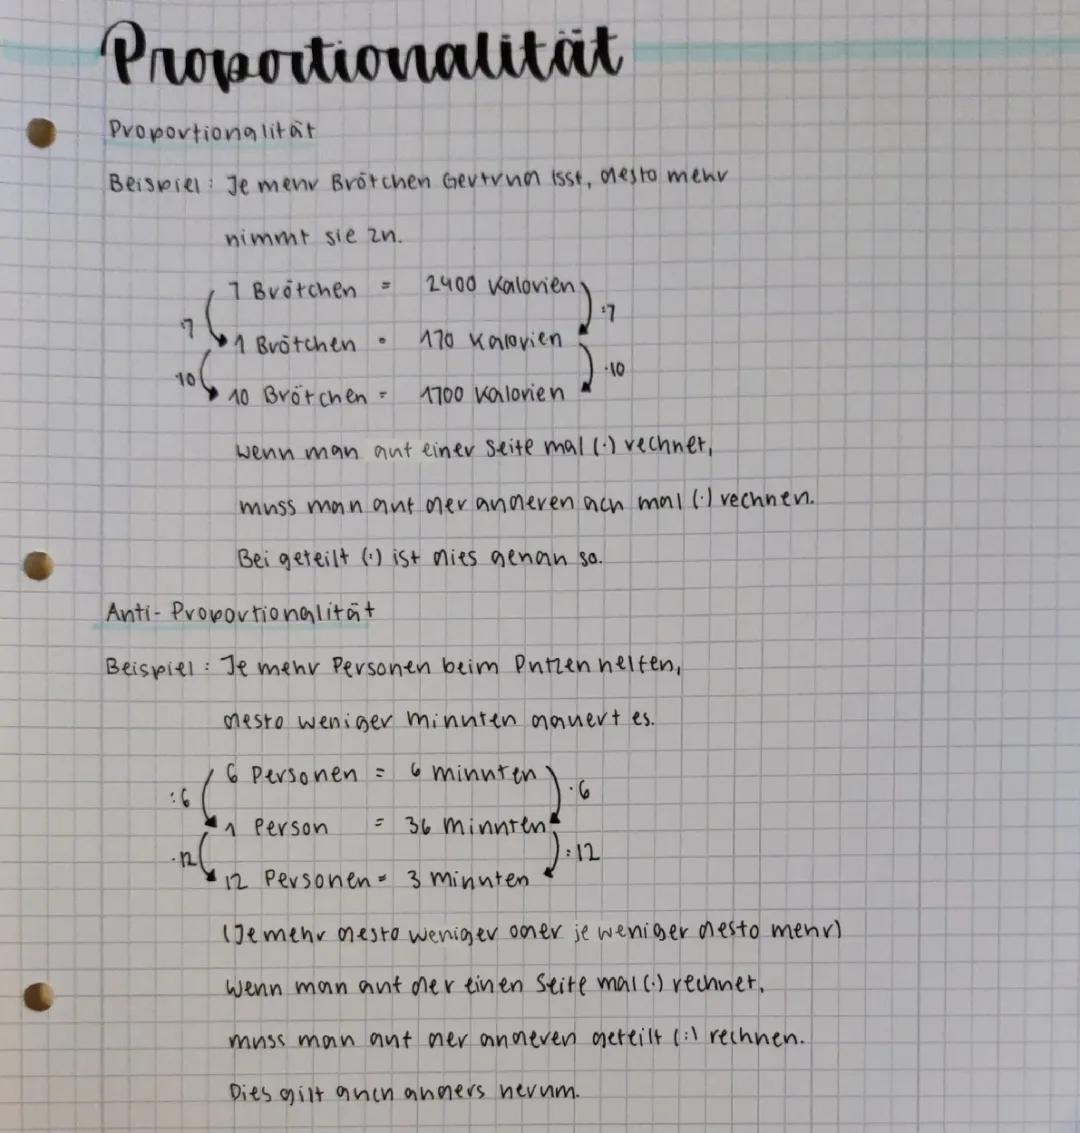 Proportionalität
Proportionalität
Beispiel: Je mehr Brötchen Gertrud isst, desto mehr
nimmt sie zu.
7 Brötchen = 2400 Kalorien
:7 :7
1 Brötchen = 170 Kalorien
·10 ·10
10 Brötchen = 1700 Kalorien
Wenn man auf einer Seite mal (·) rechnet,
muss man auf der anderen ach mal (·) rechnen.
Bei geteilt (:) ist dies genau so.
Anti-Proportionalität
Beispiel: Je mehr Personen beim Putzen helfen,
desto weniger Minuten dauert es.
6 Personen = 6 Minuten
:6 ·6
1 Person = 36 Minuten
·12 :12
12 Personen = 3 Minuten
(Je mehr desto weniger oder je weniger desto mehr)
Wenn man auf der einen Seite mal (·) rechnet,
muss man auf der anderen geteilt (:) rechnen.
Dies gilt auch anders herum.